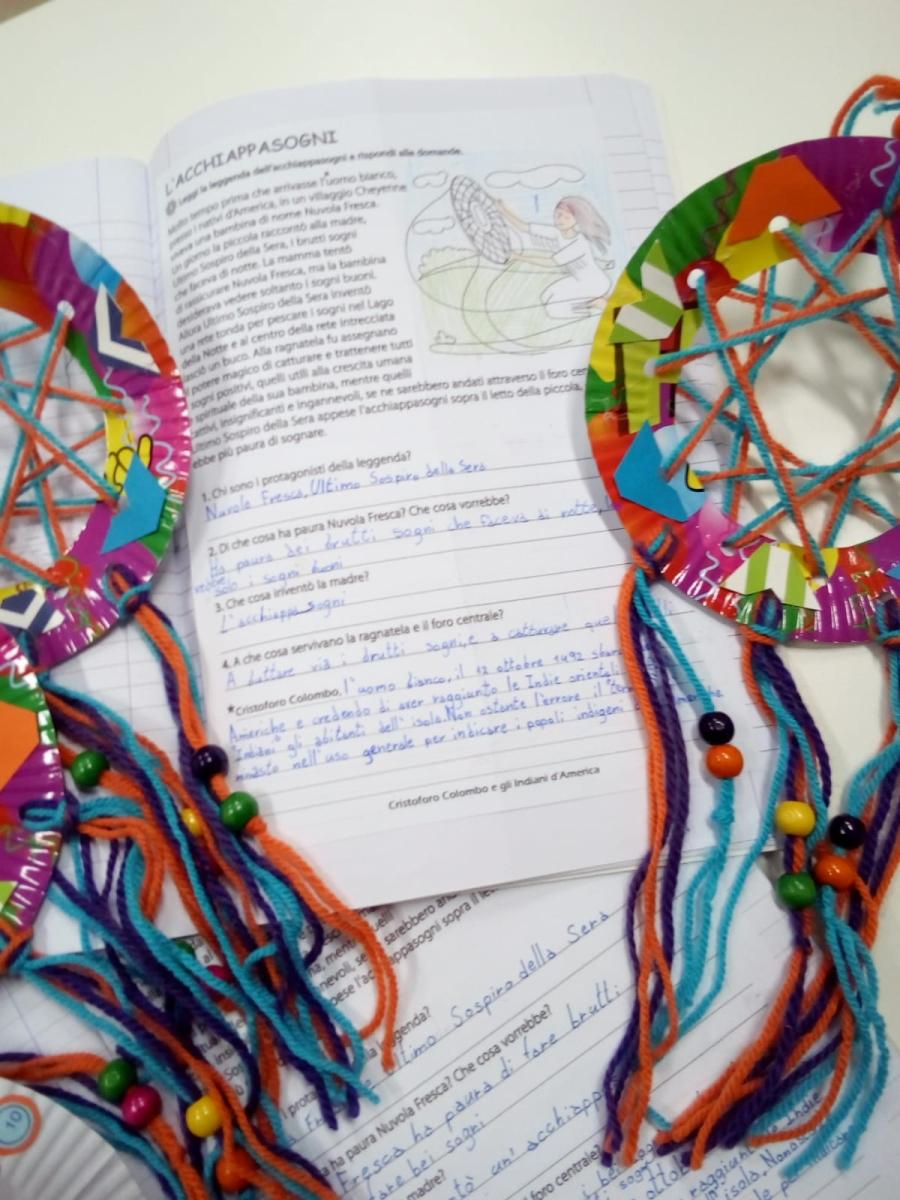 L'ACCHIAPPASOGNI
Leggi la leggenda dell'acchiappasogni e rispondi alle domande.
Molto tempo prima che arrivasse l'uomo bianco,
presso i nativi d'America, in un villaggio Cheyenne
viveva una bambina di nome Nuvola Fresca.
Un giorno la piccola raccontò alla madre,
Ultimo Sospiro della Sera, i brutti sogni
che faceva di notte. La mamma tentò
di rassicurare Nuvola Fresca, ma la bambina
desiderava vedere soltanto i sogni buoni.
Allora Ultimo Sospiro della Sera inventò
una rete tonda per pescare i sogni nel Lago
della Notte e al centro della rete intrecciata
lasciò un buco. Alla ragnatela fu assegnato
potere magico di catturare e trattenere tutti
sogni positivi, quelli utili alla crescita umana
spirituale della sua bambina, mentre quelli
cattivi, insignificanti e ingannevoli, se ne sarebbero andati attraverso il foro cen
Ultimo Sospiro della Sera appese l'acchiappasogni sopra il letto della piccola,
ebbe più paura di sognare.
1. Chi sono i protagonisti della leggenda?
Nuvola Fresca, Ultimo Sospiro della Sera
2. Di che cosa ha paura Nuvola Fresca? Che cosa vorrebbe?
Ha paura dei brutti sogni che faceva di notte,
solo i sogni buoni
3. Che cosa inventò la madre?
L'acchiappa sogni
4. A che cosa servivano la ragnatela e il foro centrale?
A buttare via i brutti sogni, e a catturare que
*Cristoforo Colombo, l'uomo bianco, il 12 ottobre 1492 sbar
Americhe e credendo di aver raggiunto le Indie orientali
"Indiani" gli abitanti dell'isola. Non ostante l'errore il
rimasto nell'uso generale per indicare i popoli indigeni
Cristoforo Colombo e gli Indiani d'America
sarebbero
pese l'acchiappasogni sopra il
leggenda?
ltimo Sospiro della Sera
sa ha paura Nuvola Fresca? Che cosa vorrebbe?
Fresca ha paura di fare brutti
fare bei sogni
madre?
tò un'acchiapp
foro centrale?
10